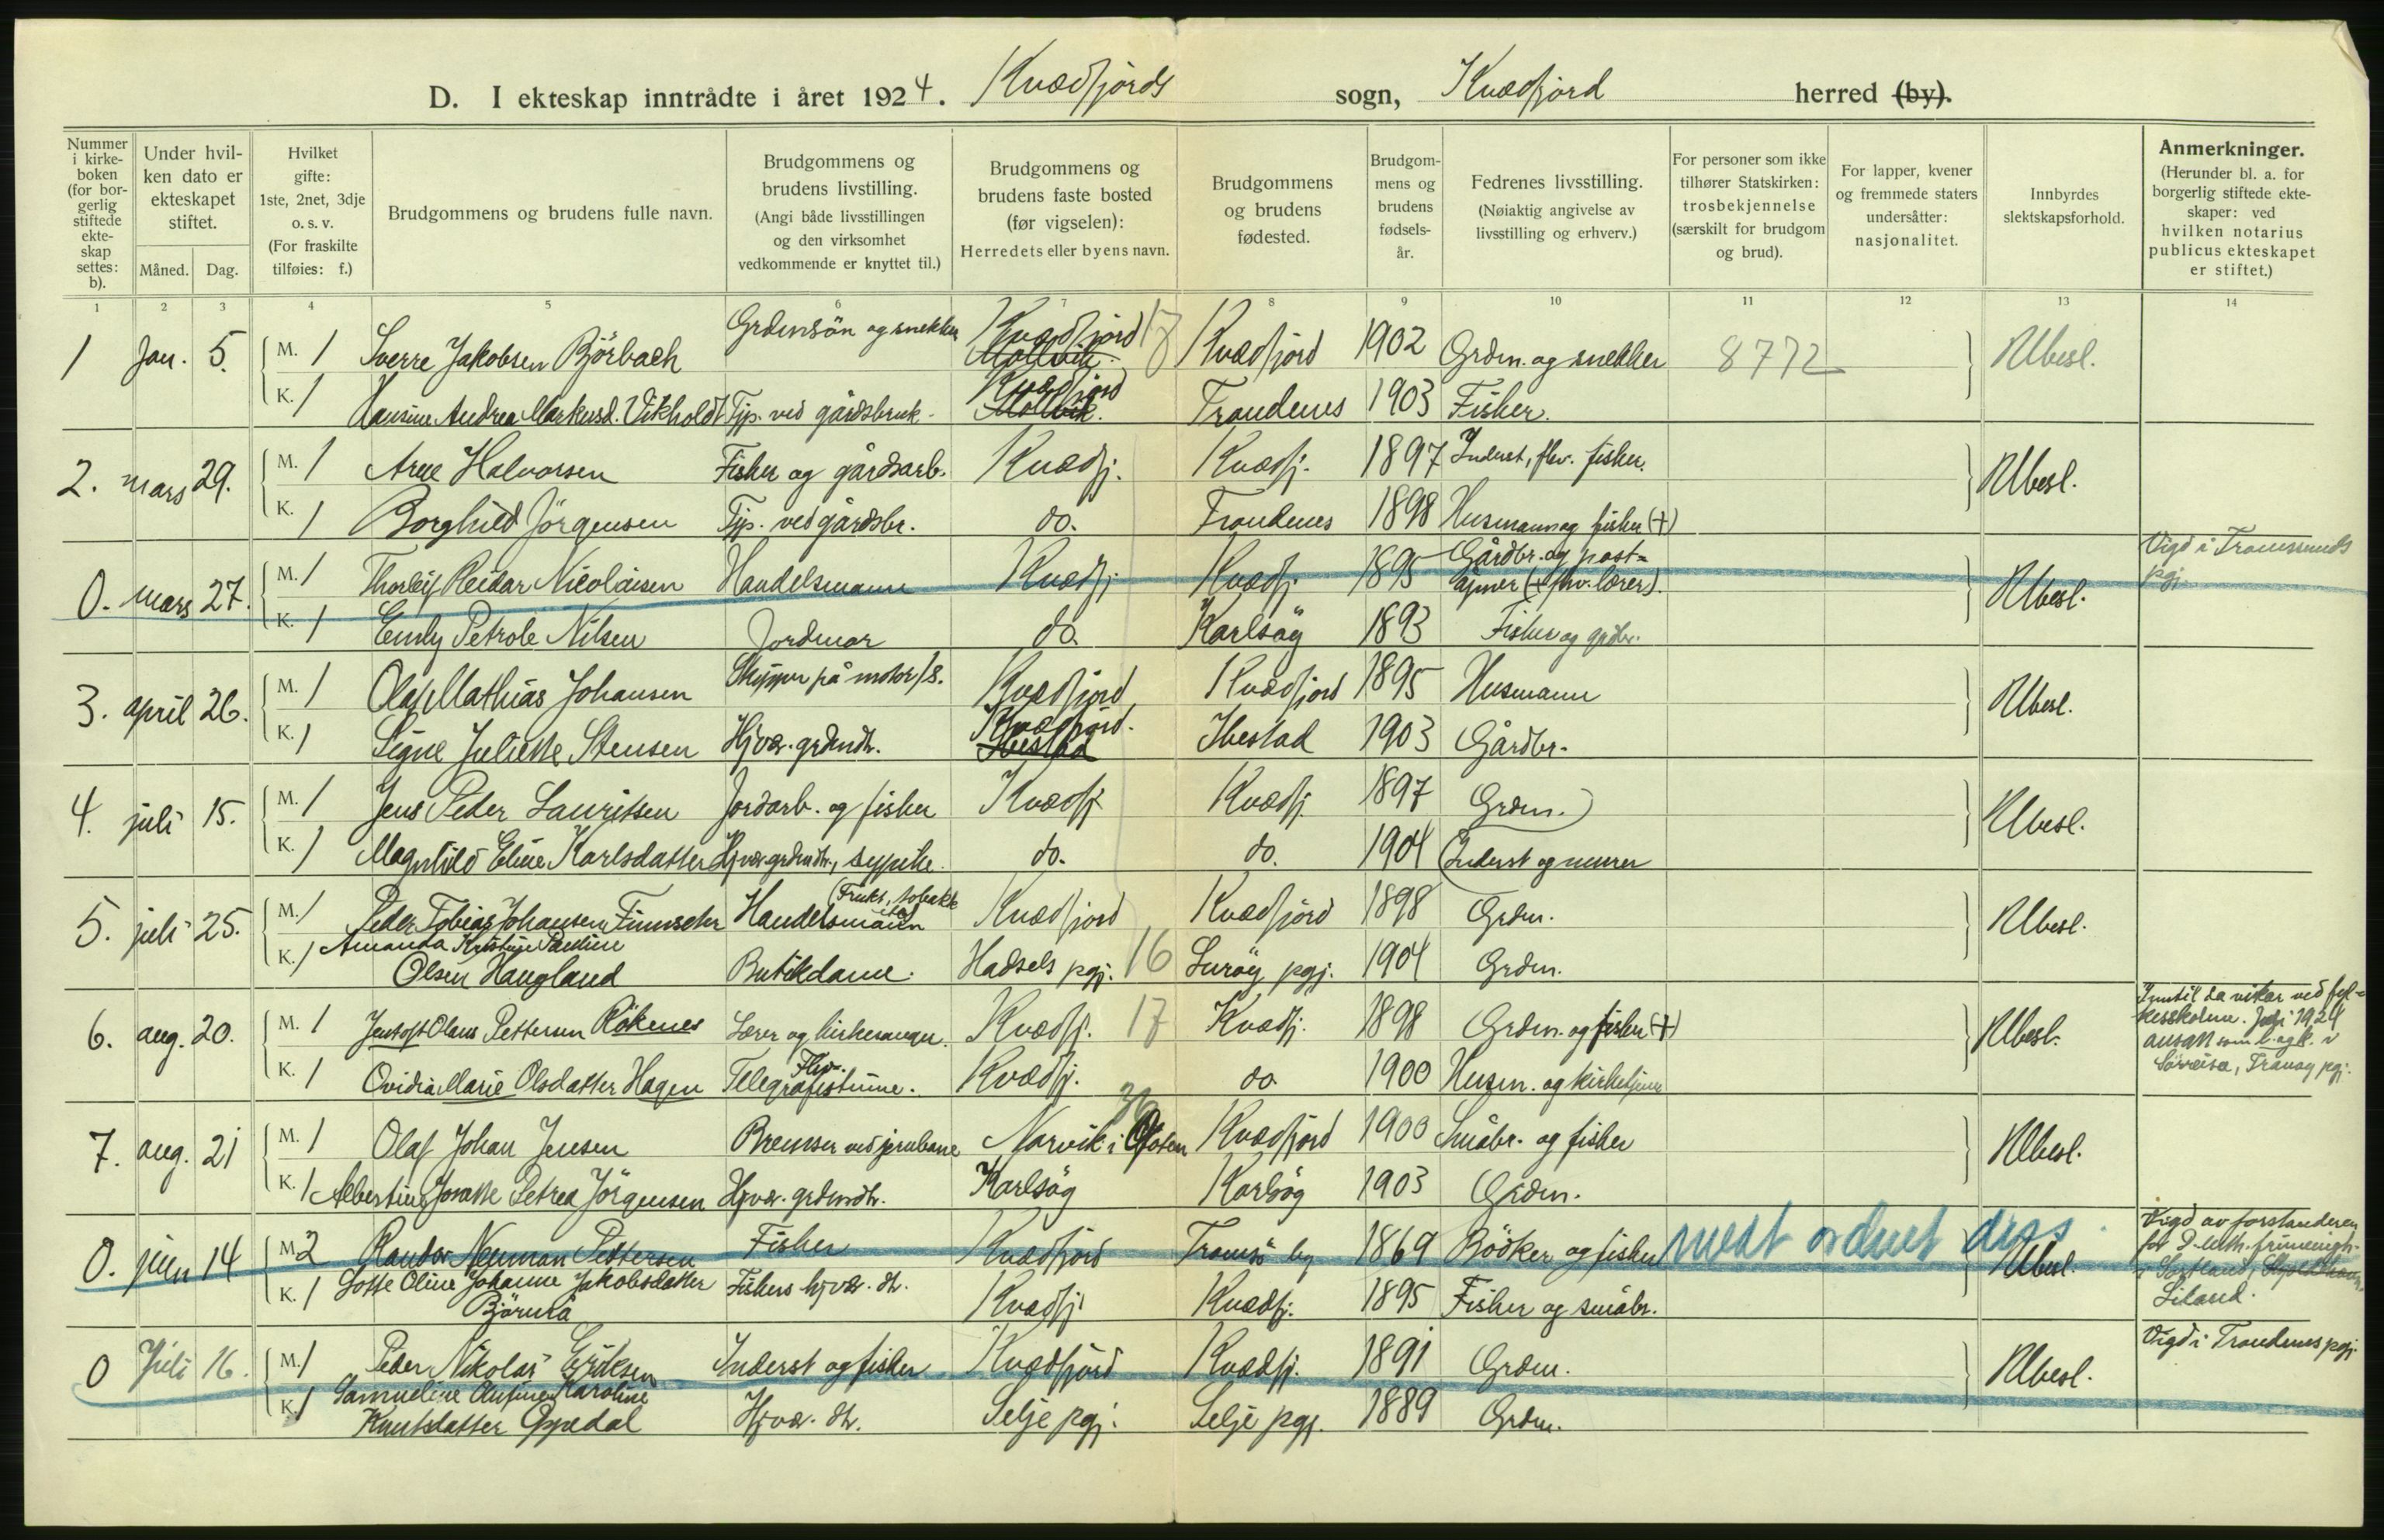 D. I ekteskap inntrådte i året 1924. Kvædfjords sogn, Kvædfjord herred (by).
Nummer i kirke-boken (for bor-gerlig stiftede ekte-skap settes: b).
Under hvil-ken dato er ekteskapet stiftet.
Måned. Dag.
Hvilket gifte: 1ste, 2net, 3dje o. s. v. (For fraskilte tilføies: f.)
Brudgommens og brudens fulle navn.
Brudgommens og brudens livstilling. (Angi både livsstillingen og den virksomhet vedkommende er knyttet til.)
Brudgommens og brudens faste bosted (før vigselen): Herredets eller byens navn.
Brudgommens og brudens fødested.
Brudgom-mens og brudens fødsels-år.
Fedrenes livsstilling. (Nøiaktig angivelse av livsstilling og erhverv.)
For personer som ikke tilhører Statskirken: trosbekjennelse (særskilt for brudgom og brud).
For lapper, kvener og fremmede staters undersåtter: nasjonalitet.
Innbyrdes slektskapsforhold.
Anmerkninger. (Herunder bl. a. for borgerlig stiftede ekte-skaper: ved hvilken notarius publicus ekteskapet er stiftet.)
1 2 3 4 5 6 7 8 9 10 11 12 13 14
1 Jan. 5. M. 1 Sverre Jakobsen Björbach Grdmsön og snekker Kvædfjord 17 Kvædfjord 1902 Grdm. og snekker 8772 Ubesl.
K. 1 Hansine Andrea Markusd. Vikholdt Tjp. ved gårdsbruk Kvædfjord Trondenes 1903 Fisker.
2. mars 29. M. 1 Arne Halvorsen Fisker og gårdsarb. Kvædfj. Kvædfj. 1897 Inderst, flv. fisker. Ubesl.
K. 1 Borghild Jörgensen Tjp. ved gårdsbr. do. Trondenes 1898 Husmann og fisker (+)
0. mars 27. M. 1 Thorleif Reidar Nicolaisen Handelsmann Kvædfj. Kvædfj. 1895 Gårdbr. og post=åpner (+ flv. lærer). Ubesl. Vigd i Tromsøsunds pgj.
K. 1 Emly Petrole Nilsen Jordmor do. Karlsöy 1893 Fisker og grdbr.
3. april 26. M. 1 Olaf Mathias Johansen Skipper på motor/s. Kvædfjord Kvædfjord 1895 Husmann Ubesl.
K. 1 Signe Juliette Stensen Hjvær. grdmdtr. Kvædfjord. Ibestad Ibestad 1903 Gårdbr.
4. juli 15. M. 1 Jens Peder Lauritsen Jordarb. og fisker Kvædfj. Kvædfj. 1897 Grdm. Ubesl.
K. 1 Magnhild Eline Karlsdatter Hjvær. grdmdtr., sypike. do. do. 1904 Inderst og murer
5. juli 25. M. 1 Peder Tobias Johansen Finnsæter Handelsmann (Frukt, tobakk Kvædfjord Kvædfjord 1898 Grdm. Ubesl.
K. 1 Amanda Kristine Pauline Olsen Haugland Butikdame. Hadsels pgj. 16 Luröy pgj. 1904 Grdm.
6. aug. 20. M. 1 Jentoft Olaus Pettersen Rökenes Lærer og kirkesanger. Kvædfj. 17 Kvædfj. 1898 Grdm. og fisker (+) Ubesl. Inntil da vikar ved fyl=kesskolen. Juli 1924 ansatt som l. og k. i Sörreisa, Tranöy pgj.
K. 1 Ovidia Marie Olsdatter Hagen Telegrafistinne. Kvædfj. do 1900 Husm. og kirketjener
7. aug. 21 M. 1 Olaf Johan Jensen Bremser ved jernbane Narvik i Ofoten Kvædfjord 1900 Småbr. og fisker Ubesl.
K. 1 Albertine Josette Petrea Jörgensen Hjvær. grdmdtr. Karlsöy Karlsöy 1903 Grdm.
0. juni 14 M. 2 Neuman Pettersen Fisker Kvædfjord Tromsö by 1869 Bödker og fisker Ubesl. Vigd av forstanderen for
K. 1 Lotte Oline Johanne Jakobsdatter Björnrå Fiskers hjvær. dtr. Kvædfj. Kvædfj. 1895 Fisker og småbr.
0 Juli 16. M. 1 Peder Nikolai Eriksen Inderst og fisker Kvædfjord Kvædfj. 1891 Grdm. Ubesl. Vigd i Trondenes pgj.
K. 1 Samueline Karoline Knutsdatter Oppedal Hjvær. dtr. Selje pgj. Selje pgj. 1889 Grdm.